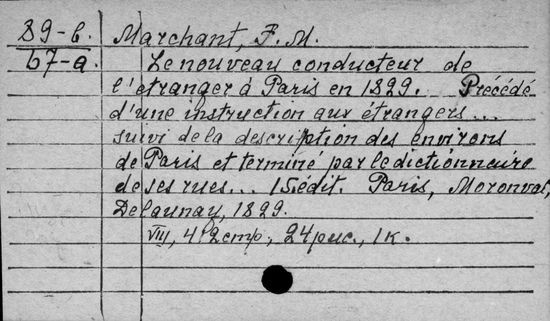 89-б. Marchant, F. M.
67-a. Le nouveau conducteur de
l'étranger à Paris en 1829. Précédé
d'une instruction aux étrangers...
suivi de la description des environs
de Paris et terminé par le dictionnaire
de ses rues... 15. édit. Paris, Moronval,
Delaunay, 1829.
VIII, 412 стр., 24 рис., 1 к.